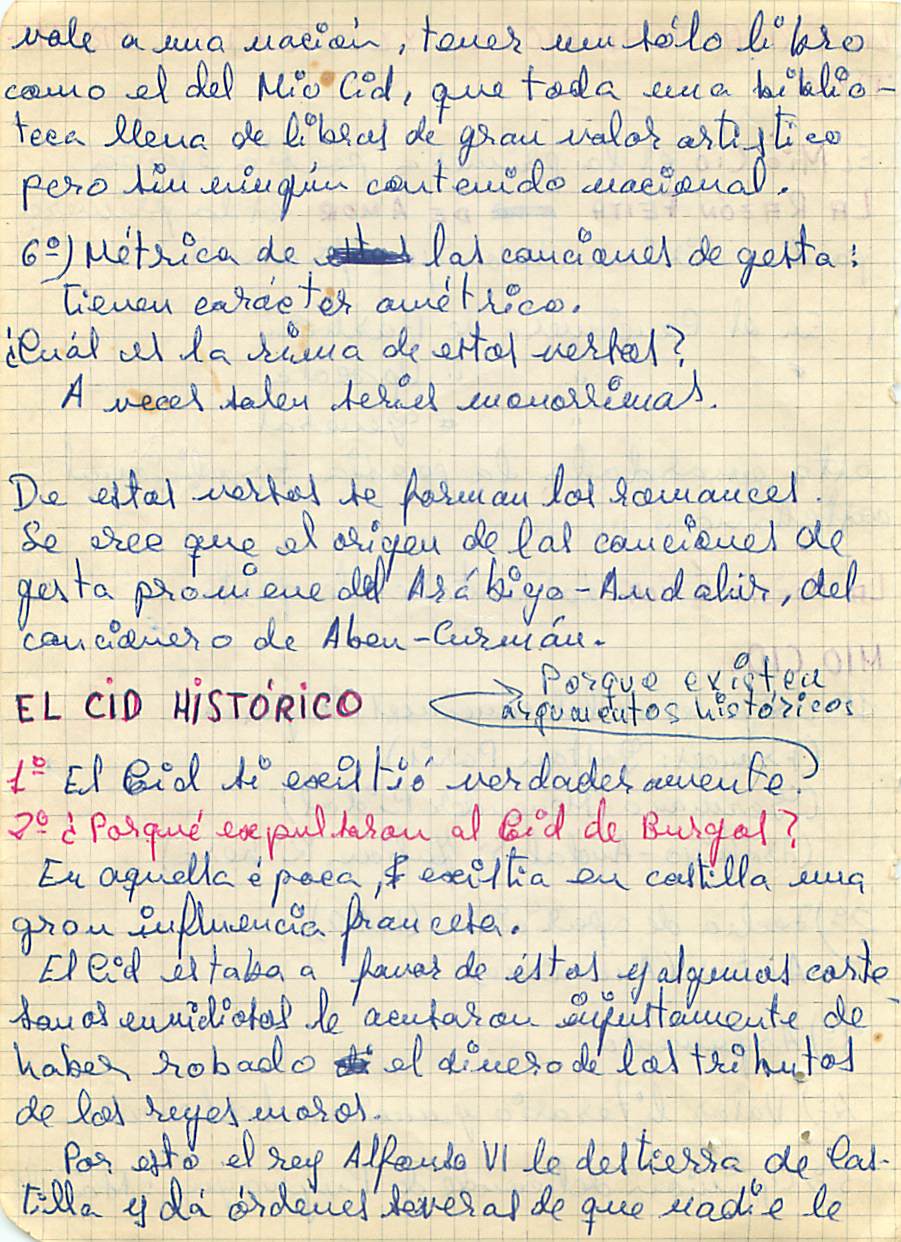 vale a una nación, tener un sólo libro
como el del Mio Cid, que toda una biblio-
teca llena de libros de gran valor artistico
pero sin ningún contenido nacional.
6º) Métrica de las canciones de gesta:
Tienen carácter amétrico.
¿Cuál es la rima de estos versos?
A veces salen series monorrimas.
De estos versos se forman los romances.
Se cree que el origen de las canciones de
gesta proviene del Arábigo-Andaluz, del
cancionero de Aben-Curmán.
Porque existen
EL CID HISTÓRICO argumentos históricos
1º El Cid si existió verdaderamente?
2º ¿Porqué expulsaron al Cid de Burgos?
En aquella época, existia en castilla una
gran influencia francesa.
El Cid estaba a favor de éstos y algunos corte
sanos envidiosos le acusaron injustamente de
haber robado el dinero de los tributos
de los reyes moros.
Por esto el rey Alfonso VI le destierra de Cas-
tilla y dá órdenes severas de que nadie le